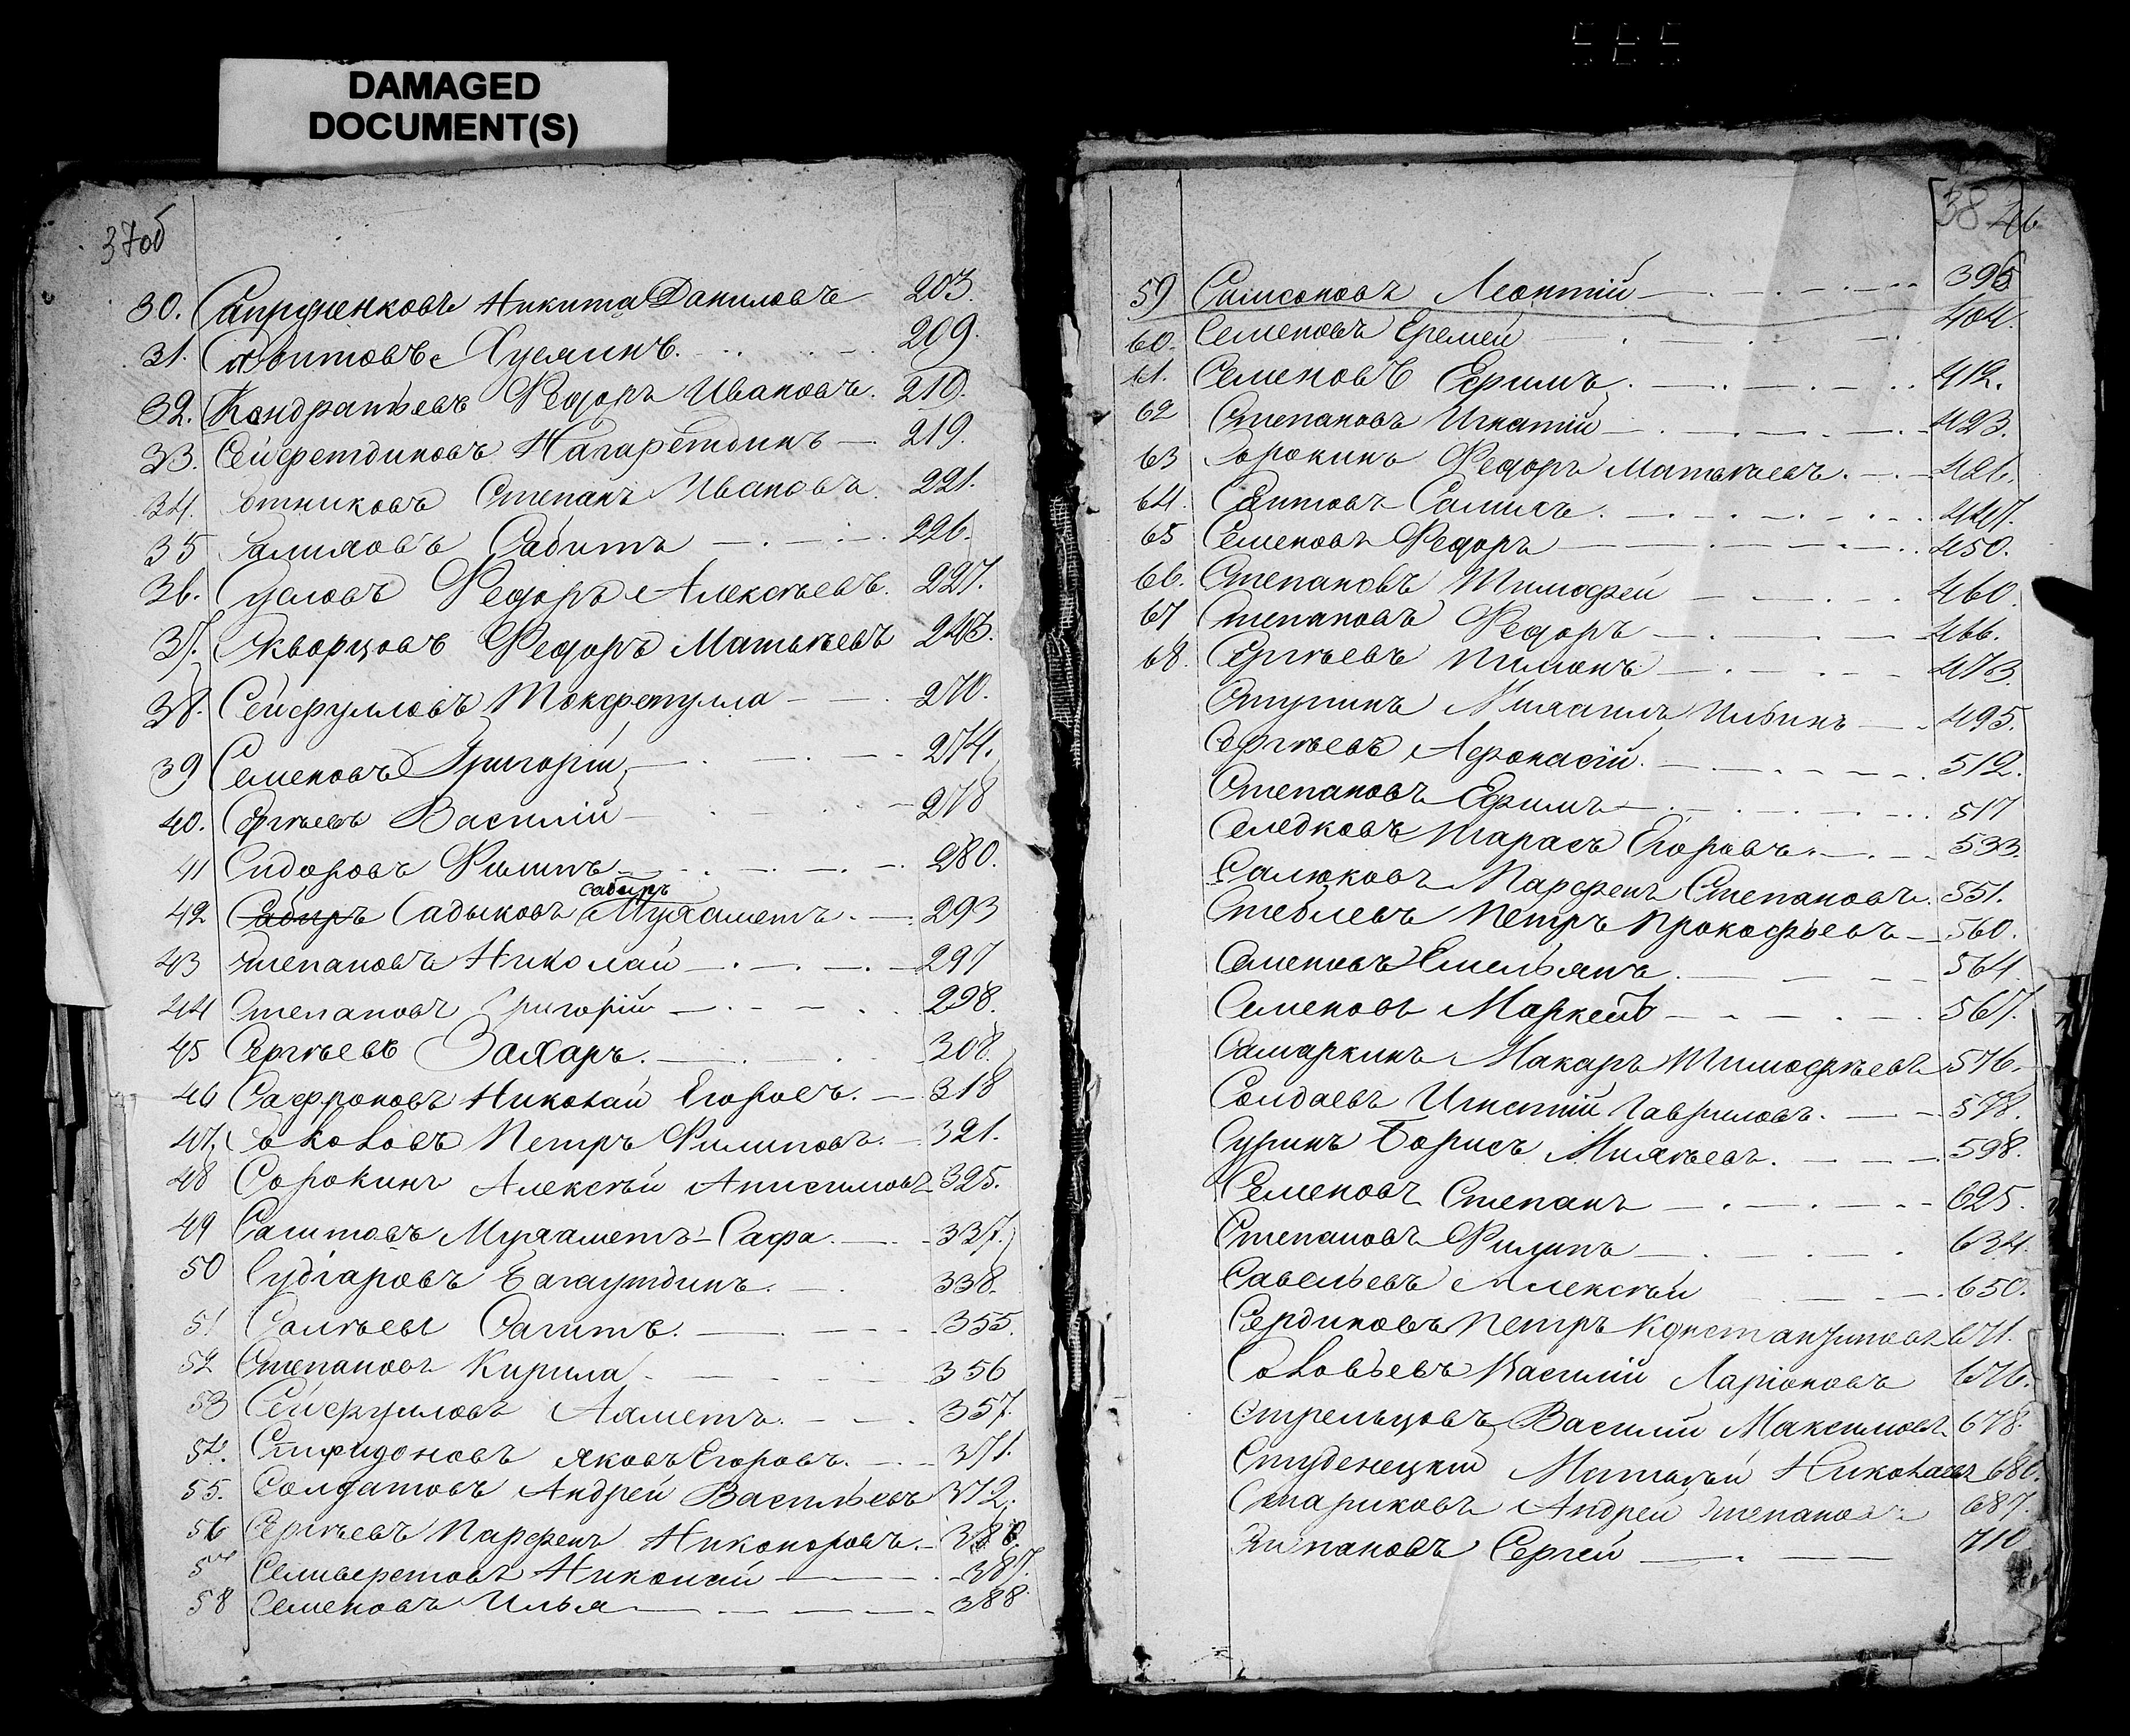 DAMAGED
DOCUMENT(S)
37об
30. Никита Даниловъ 203.
31. 209.
32. Кондратьевъ Федоръ Ивановъ. 210.
33. Сейфетдиновъ 219.
34. Сотниковъ Степанъ Ивановъ. 221.
35 Салиховъ Сабитъ 226.
36. Сусловъ Федоръ Алексѣевъ. 227.
37. Скворцовъ Федоръ Матвѣевъ 243.
38. Сейфулловъ 270.
39 Семеновъ Григорій 274.
40. Сергѣевъ Василій 278
41 Сидоровъ Филипъ 280.
Сабиръ
42 Сабиръ Садыковъ Мухаметъ. 293
43 Степановъ Николай 297
44 Степановъ Григорій 298.
45 Сергѣевъ Захаръ. 308.
46 Сафроновъ Николай Егоровъ. 318
47. Соколовъ Петръ Филиповъ. 321.
48 Сорокинъ Алексѣй Анисимовъ 325.
49 Саитовъ Мухаметъ-Сафа. 337.
50 Багаутдинъ. 338.
51 Сагитъ. 355.
52 Степановъ Кирила 356
53 Сейфулловъ Ахметъ. 357.
54. Спиридоновъ Яковъ Егоровъ. 371.
55. Солдатовъ Андрей Васильевъ 372.
56 Сергѣевъ Парфенъ Никоноровъ.
57 Селиверстовъ Николай 387.
58 Семеновъ Илья 388
38 46
59 Самсоновъ Леонтій 395
60. Семеновъ Еремей 404.
61. Семеновъ Ефимъ. 412.
62 Степановъ Игнатій 423.
63 Сорокинъ Федоръ Матвѣевъ. 426.
64. Саитовъ Салихъ. 447.
65 Семеновъ Федоръ 450.
66. Степановъ Тимофей 460.
67 Степановъ Федоръ 466.
68. Сергѣевъ Пименъ 473.
Ступинъ Михаилъ Ильинъ 495.
Сергѣевъ Афонасій. 512.
Степановъ Ефимъ 517
Селедковъ Тарасъ Егоровъ. 533.
Салюковъ Парфенъ Степановъ. 551.
Стеблевъ Петръ Прокофьевъ 560.
Семеновъ Емельянъ. 564.
Семеновъ 567.
Самаркинъ Макаръ Тимофѣевъ 576.
Солдаевъ Игнатій Гавриловъ. 578.
Суринъ Борисъ Михѣевъ. 598.
Семеновъ Степанъ 625.
Степановъ Филипъ 634.
Савельевъ Алексѣй 650.
Сердиновъ Петръ Константиновъ 671.
Соловьевъ Василій Ларіоновъ 676.
Стрельцовъ Василій Максимовъ 678.
Студенецкій Матвѣй Николаевъ 680.
Стариковъ Андрей Степановъ 687.
Степановъ Сергей 710